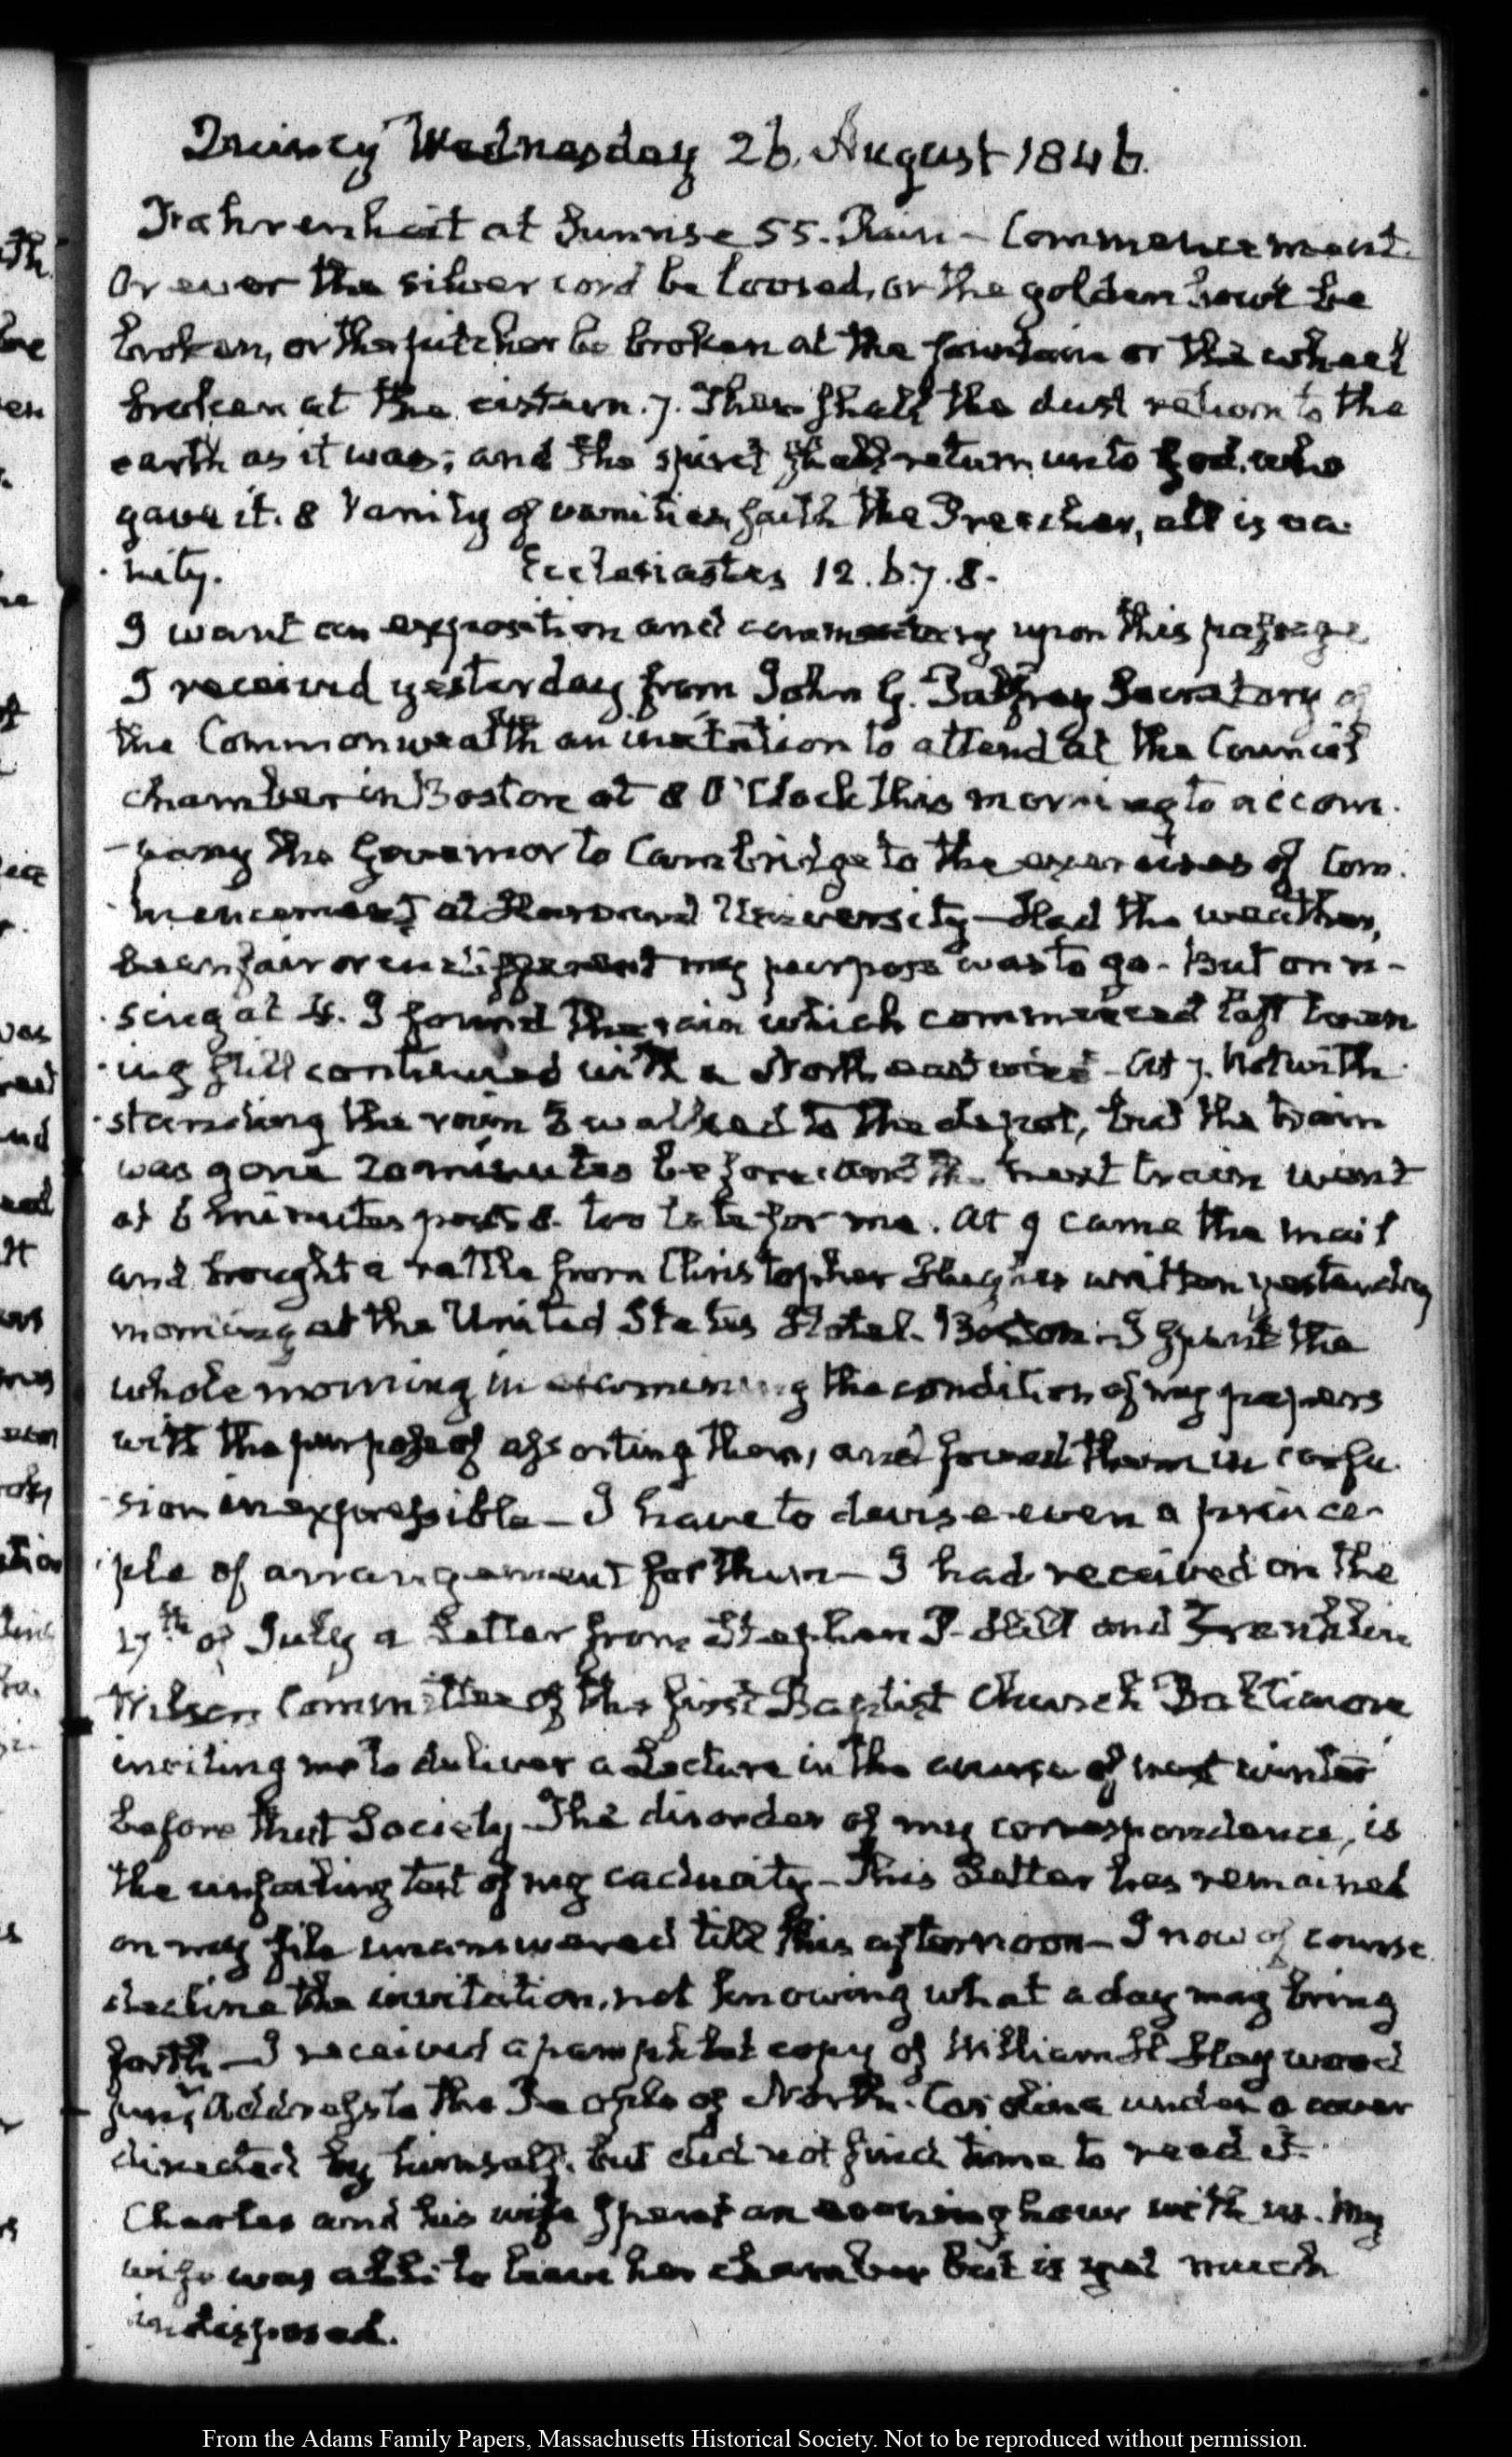 Quincy Wednesday 26. August 1846.
Fahrenheit at Sunrise 55. Rain – Commencement.
Or ever the silver cord be loosed, or the golden bowl be
broken, or the pitcher be broken at the fountain or the wheel
broken at the cistern. 7. Then shall the dust return to the
earth as it was; and the spirit shall return unto God. who
gave it. 8 Vanity of vanities, saith the Preacher, all is va-
nity. Ecclesiastes 12. 6. 7. 8.
I want an exposition and commentary upon this passage
I received yesterday from John G. Palfrey Secretary of
the Commonwealth an invitation to attend at the Council
chamber in Boston at 8 O'Clock this morning to accom-
-pany the Governor to Cambridge to the exercises of Com-
mencement at Harvard University – Had the weather,
been fair or indifferent my purpose was to go. But on ri-
sing at 4. I found the rain which commenced last even
ing still continued with a North east wind – At 7. notwith-
standing the rain I walked to the depot, but the train
was gone 20 minutes before: and the next train went
at 6 minutes past 8. too late for me. At 9 came the mail
and brought a rattle from Christopher Hughes written yesterday
morning at the United States Hotel. Boston – I spent the
whole morning in examining the condition of my papers
with the purpose of assorting them, and found them in confu-
sion inexpressible – I have to devise even a princi-
ple of arrangement for them – I had received on the
17th of July a Letter from Stephen P. Hill and Franklin
Wilson Committee of the first Baptist Church Baltimore
inviting me to deliver a Lecture in the course of next winter
before that Society. The disorder of my correspondence, is
the unfailing test of my caducity – This Letter has remained
on my file unanswered till this afternoon – I now of course
decline the invitation, not knowing what a day may bring
forth – I received a pamphlet copy of William H Haywood
junr. Address to the People of North-Carolina under a cover
directed by himself. but did not find time to read it.
Charles and his wife spent an evening hour with us. My
wife was able to leave her chamber but is yet much
indisposed.
From the Adams Family Papers, Massachusetts Historical Society. Not to be reproduced without permission.